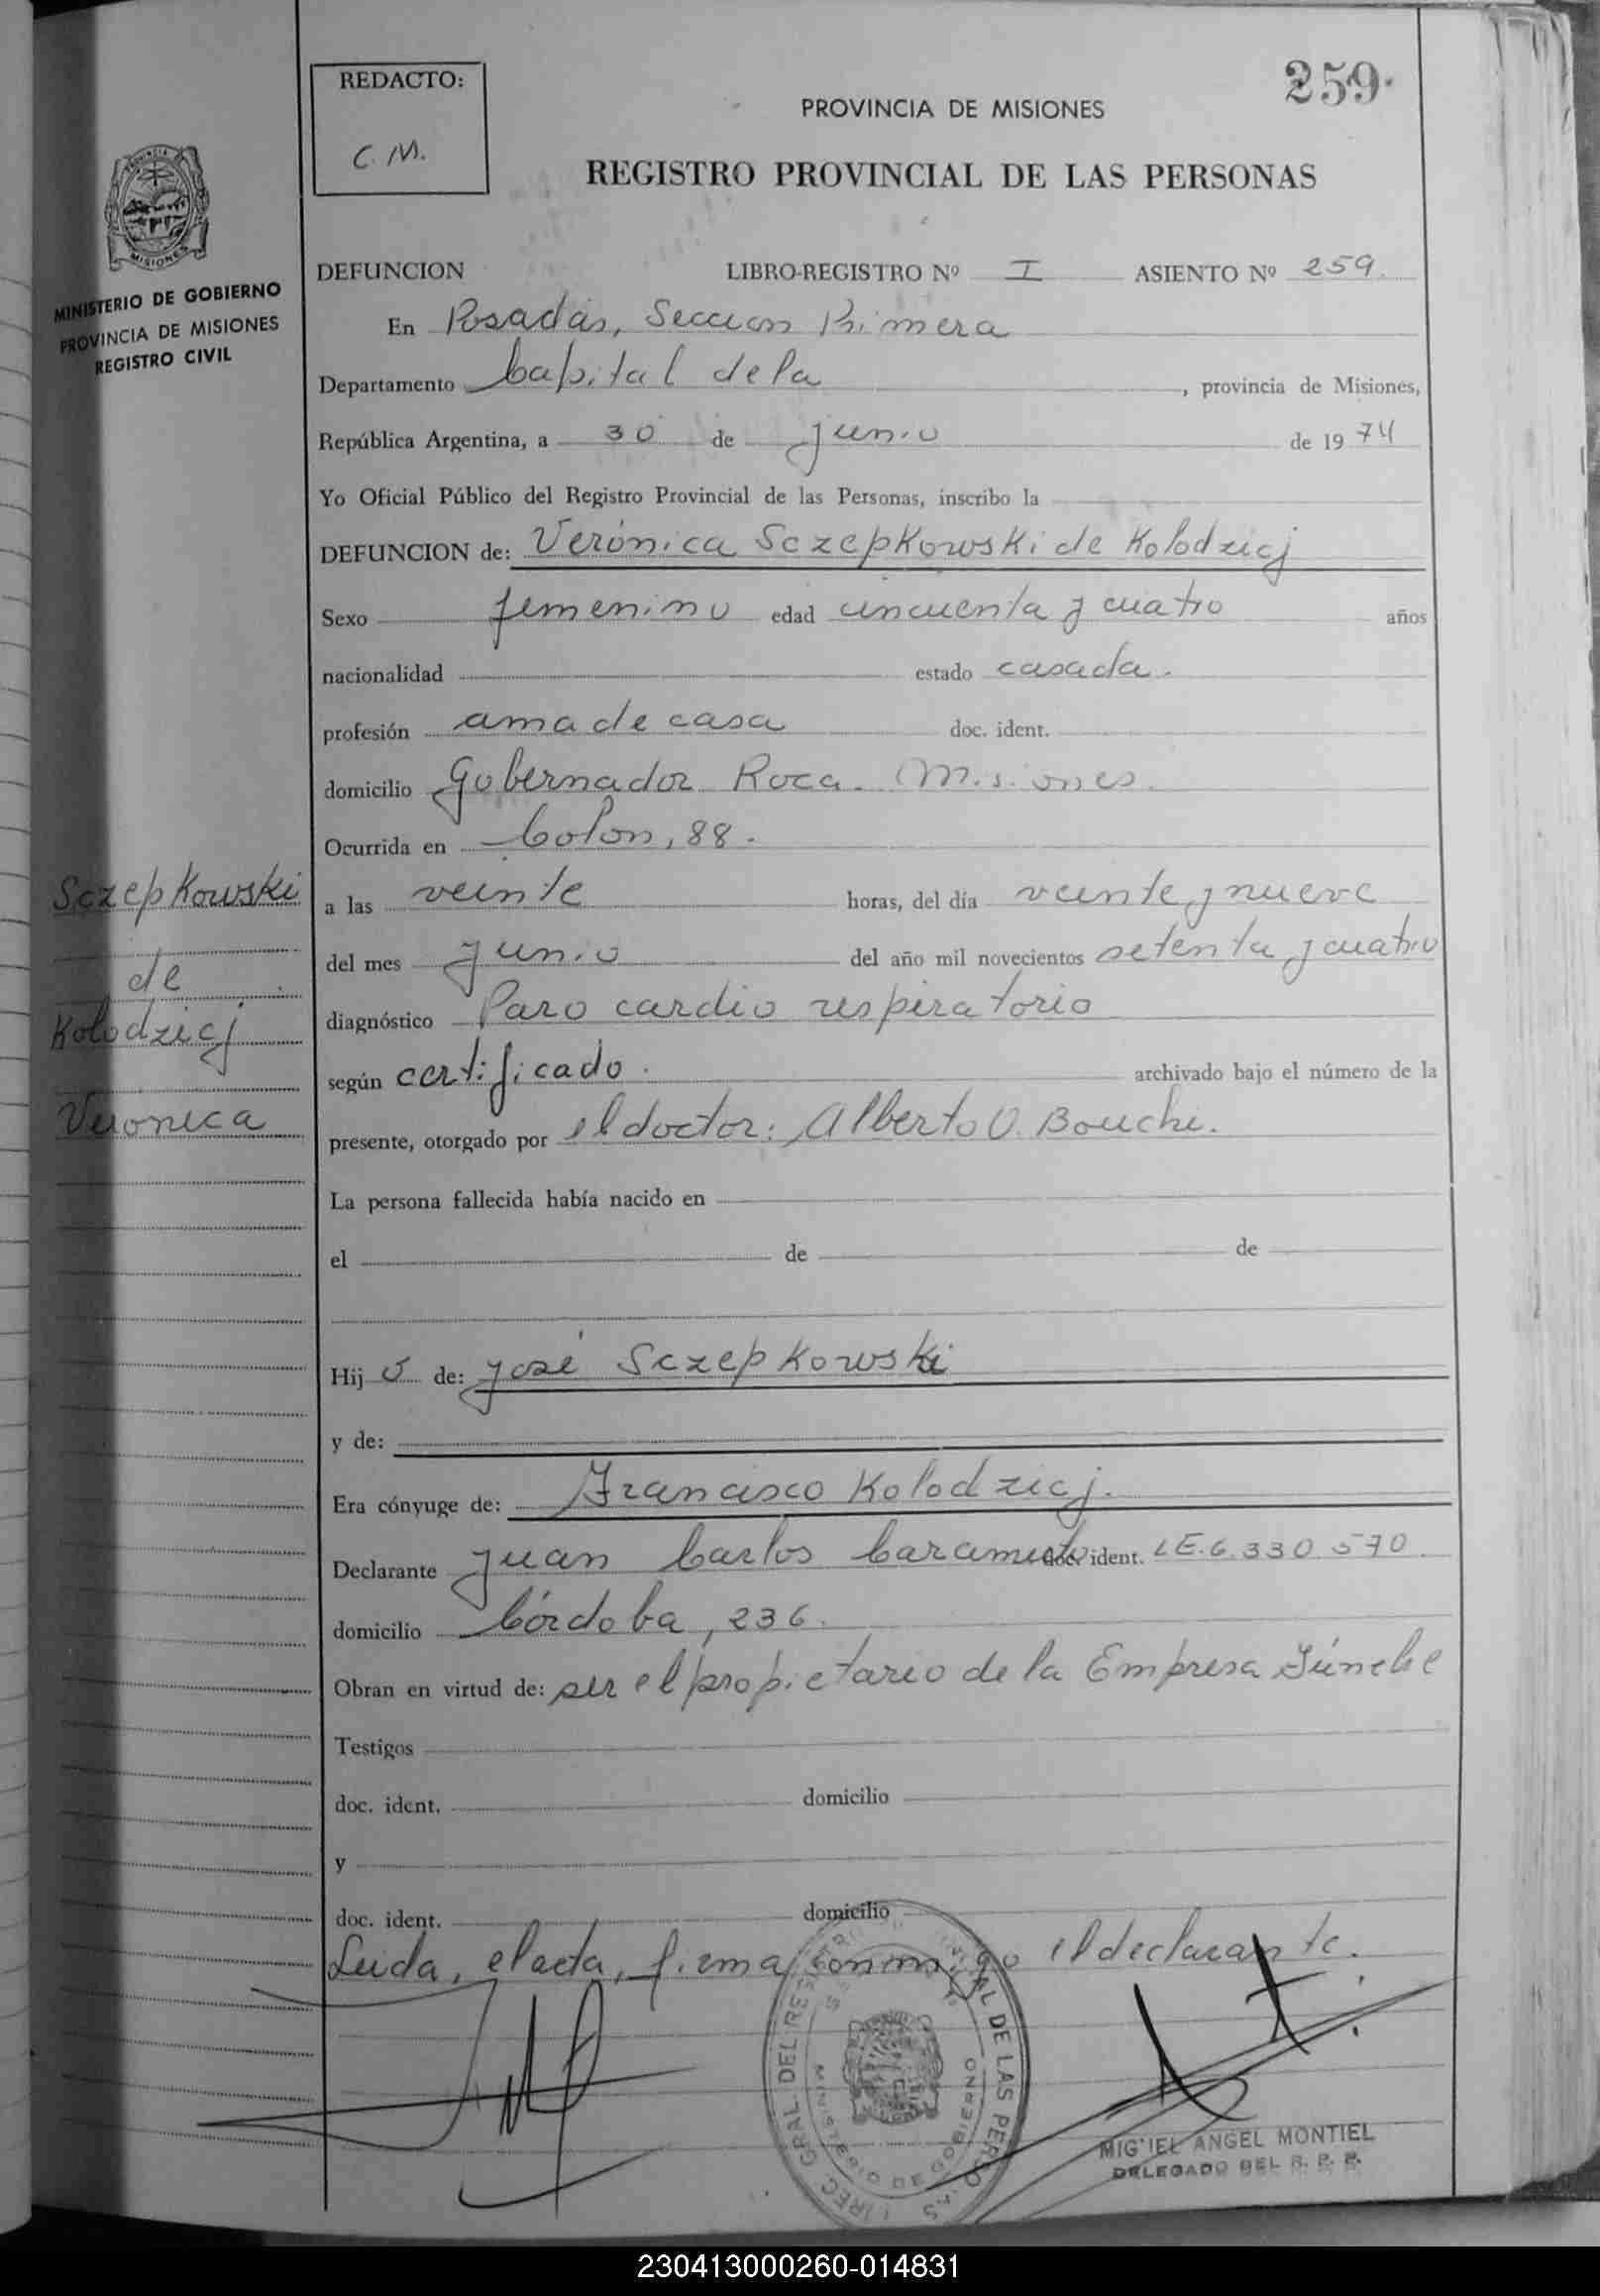 REDACTO:
C. M.
259.
PROVINCIA DE MISIONES
REGISTRO PROVINCIAL DE LAS PERSONAS
MISIONES
MINISTERIO DE GOBIERNO
PROVINCIA DE MISIONES
REGISTRO CIVIL
DEFUNCION LIBRO-REGISTRO Nº I ASIENTO Nº 259.
En Posadas, Seccion Primera
Departamento Capital de la , provincia de Misiones,
República Argentina, a 30 de junio de 1974
Yo Oficial Público del Registro Provincial de las Personas, inscribo la
DEFUNCION de: Verónica Sczepkowski de Kolodzicj
Sexo femenino edad cincuenta y cuatro años
nacionalidad estado casada.
profesión ama de casa doc. ident.
domicilio Gobernador Roca. Misiones.
Ocurrida en Colon, 88.
Sczepkowski
de
Kolodzicj
Verónica
a las veinte horas, del día veinte y nueve
del mes junio del año mil novecientos setenta y cuatro
diagnóstico Paro cardio respiratorio
según certificado. archivado bajo el número de la
presente, otorgado por el doctor: Alberto O. Bouchi.
La persona fallecida había nacido en
el de de
Hij o de: José Sczepkowski
y de:
Era cónyuge de: Francisco Kolodzicj.
Declarante Juan Carlos doc. ident. LE. 6.330.570
domicilio Córdoba, 236.
Obran en virtud de: ser el propietario de la Empresa Fúnebre
Testigos
doc. ident. domicilio
y
doc. ident. domicilio
Leida, el acta, firma conmigo el declarante.
DE LAS PERSONAS
MINISTERIO DE GOBIERNO
MIGUEL ANGEL MONTIEL
DELEGADO DEL R. P. P.
230413000260-014831